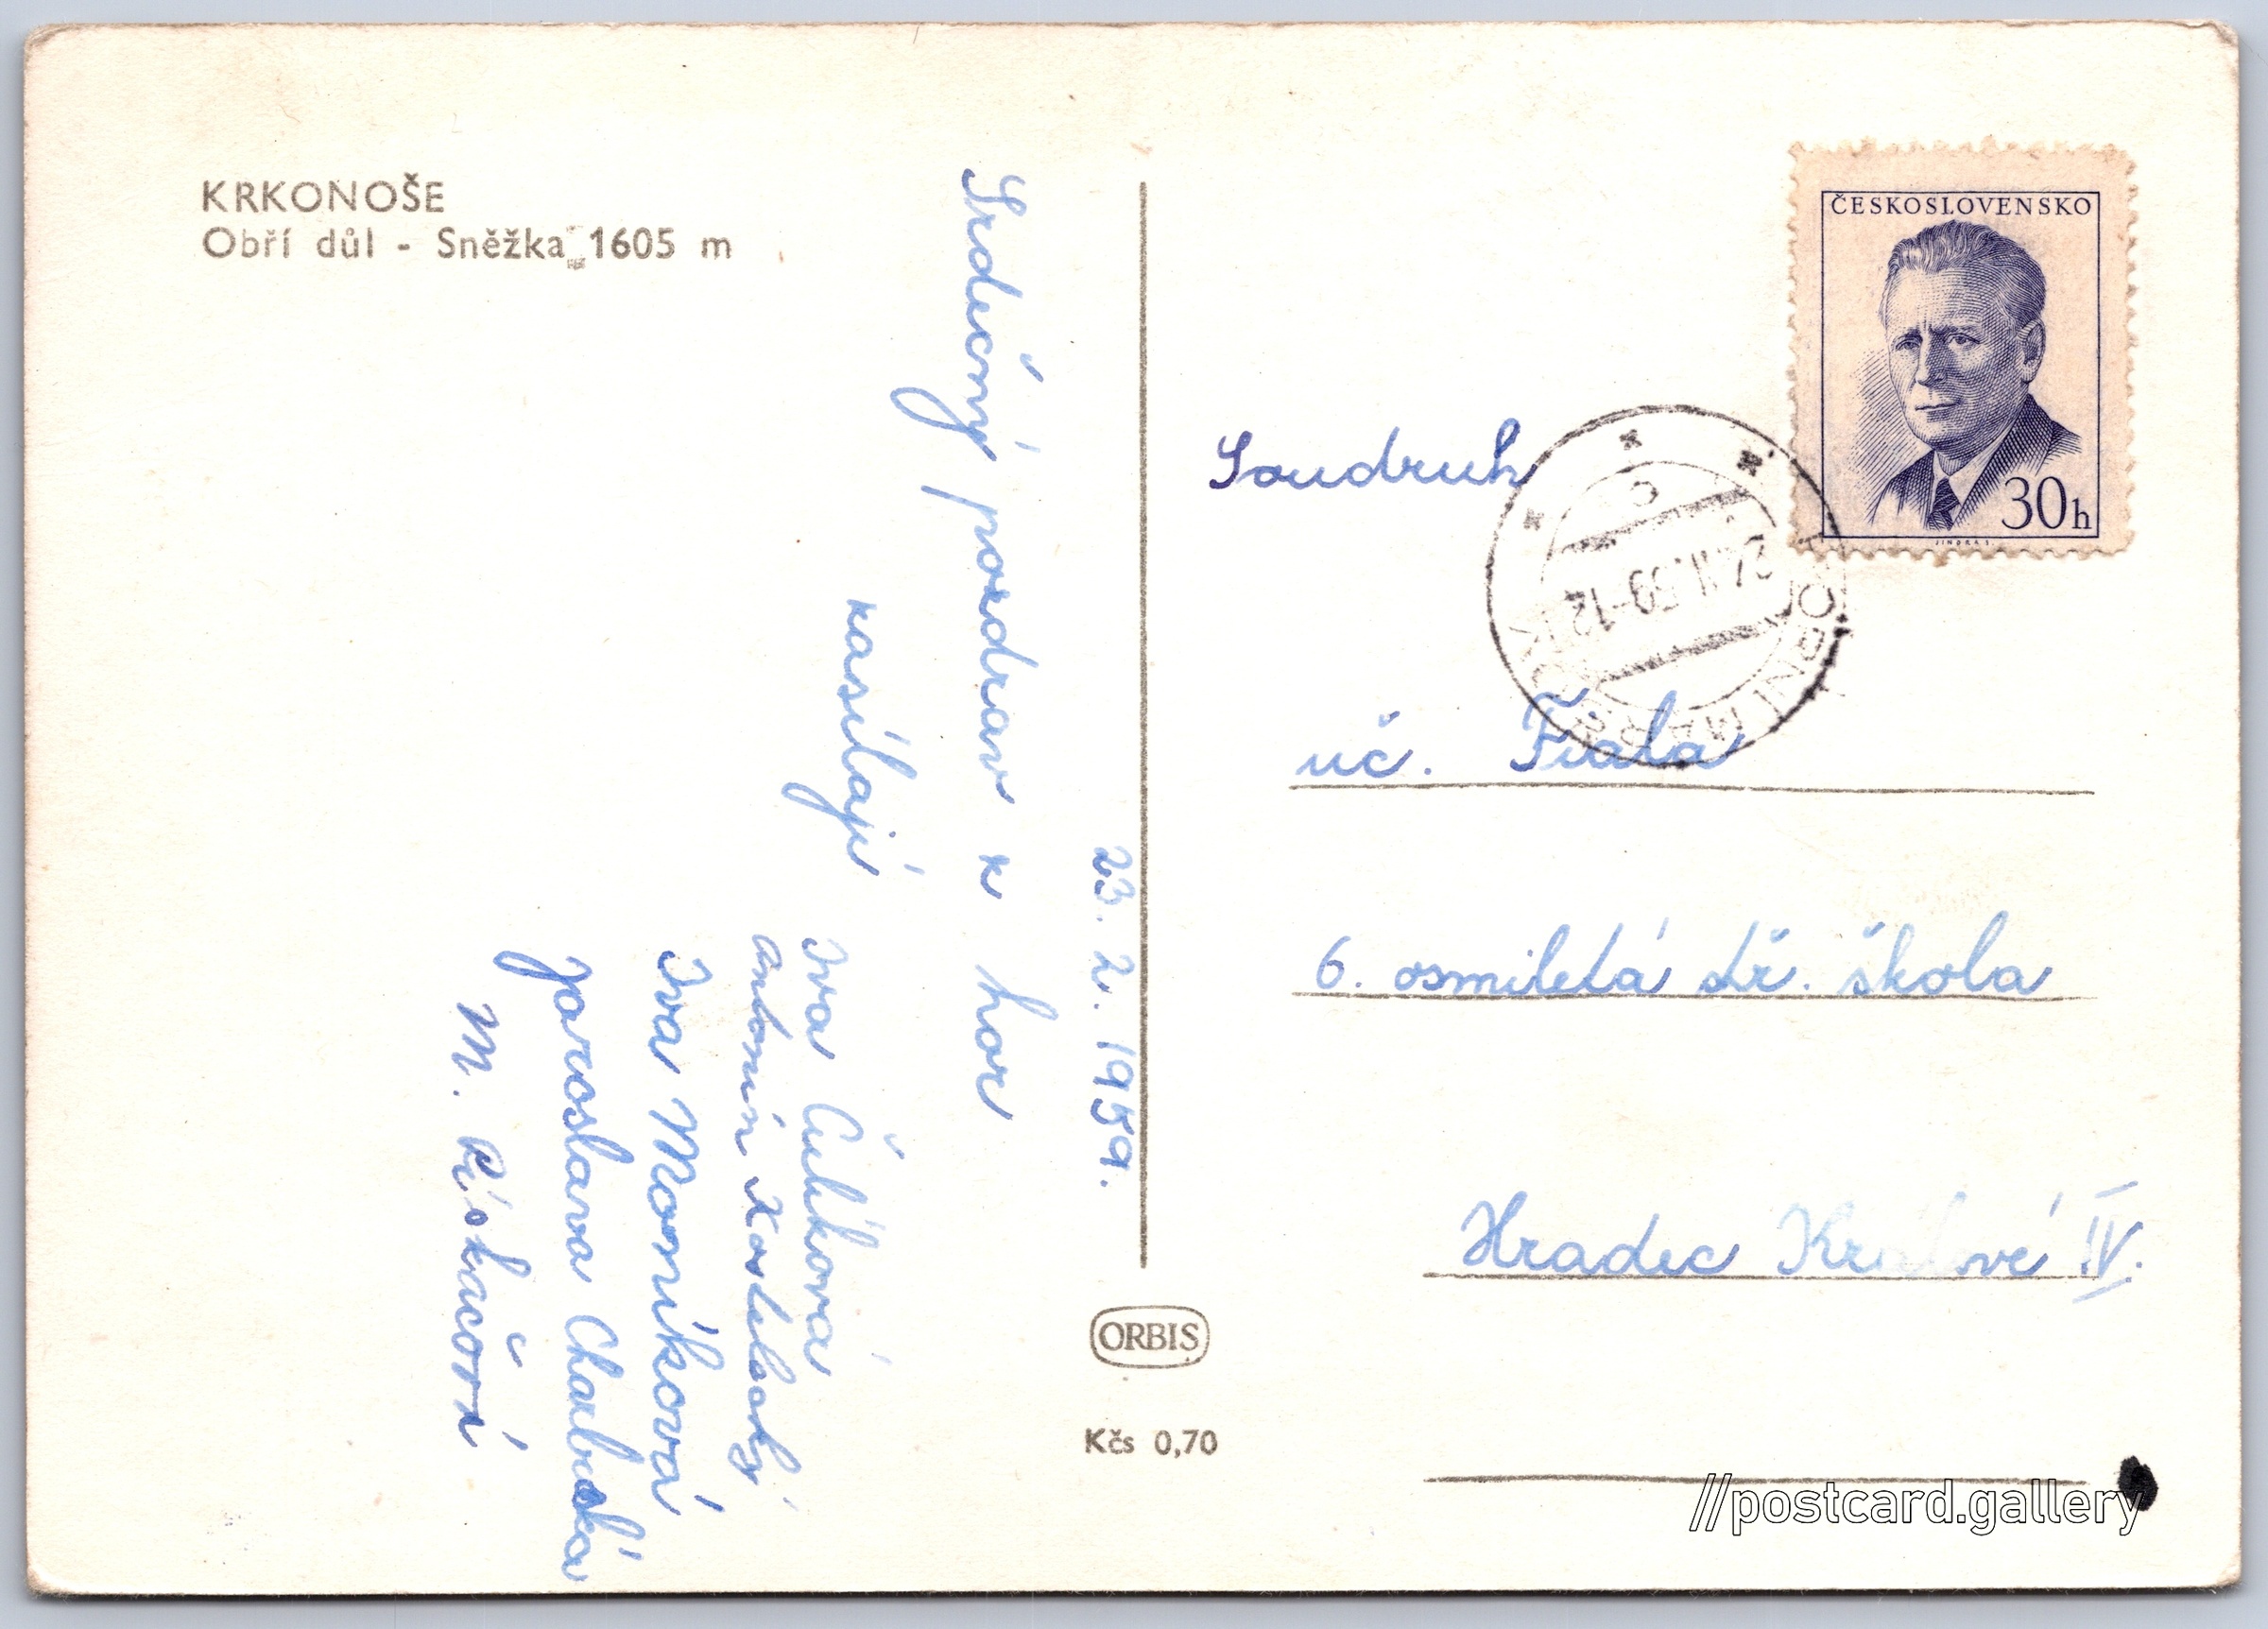 KRKONOŠE
Obří důl - Sněžka 1605 m
23. 2. 1959.
Srdečný pozdrav z hor
zasílají
Iva Čulíková
Antonín Kostelecký
Iva Morníková
Jaroslava Charbuská
M. Piskačová
ČESKOSLOVENSKO
30h
JINDRA S.
HORNÍ MARŠOV
24.II.59-12
C
Soudruh
uč. Fiala
6. osmiletá stř. škola
Hradec Králové IV.
ORBIS
Kčs 0,70
//postcard.gallery